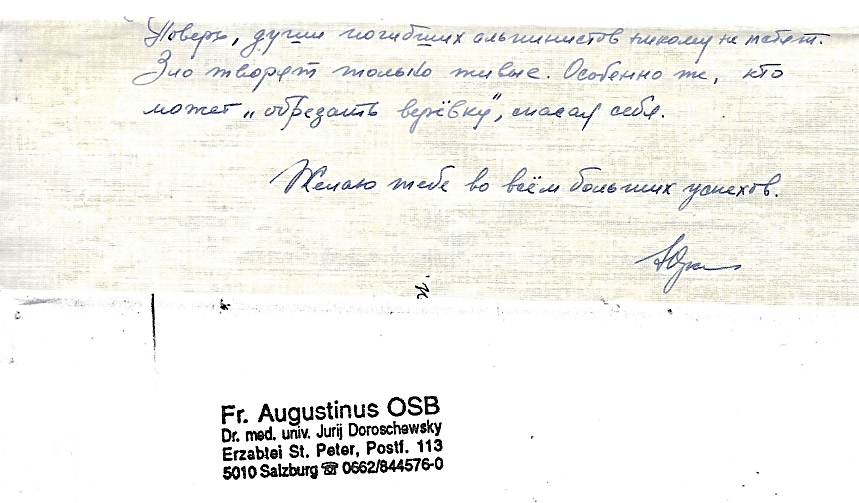 Поверь, души погибших альпинистов никому не мстят.
Зло творят только живые. Особенно же, кто
может „обрезать верёвку", спасая себя.
Желаю тебе во всём больших успехов.
Юрий
Fr. Augustinus OSB
Dr. med. univ. Jurij Doroschewsky
Erzabtei St. Peter, Postf. 113
5010 Salzburg ☎ 0662/844576-0